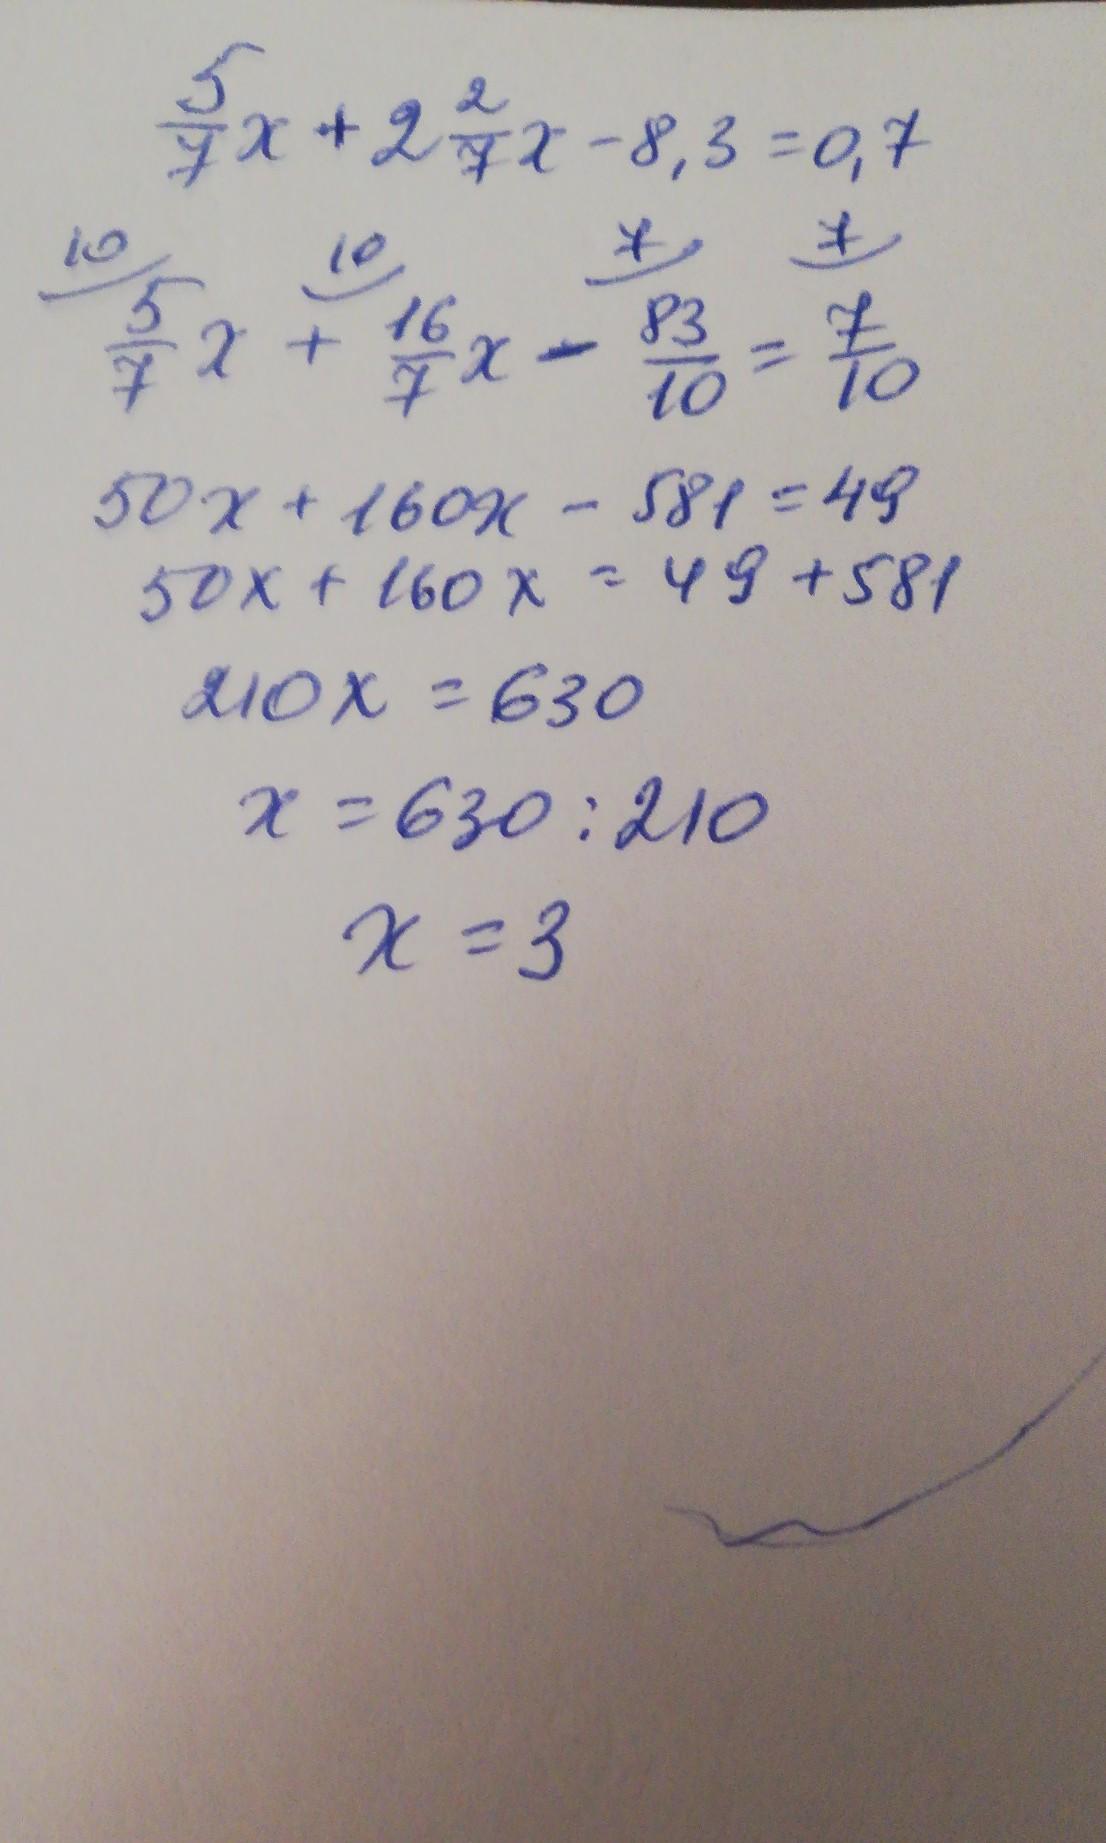 5/7 x + 2 2/7 x - 8,3 = 0,7
10 10 7 7
5/7 x + 16/7 x - 83/10 = 7/10
50x + 160x - 581 = 49
50x + 160x = 49 + 581
210x = 630
x = 630 : 210
x = 3